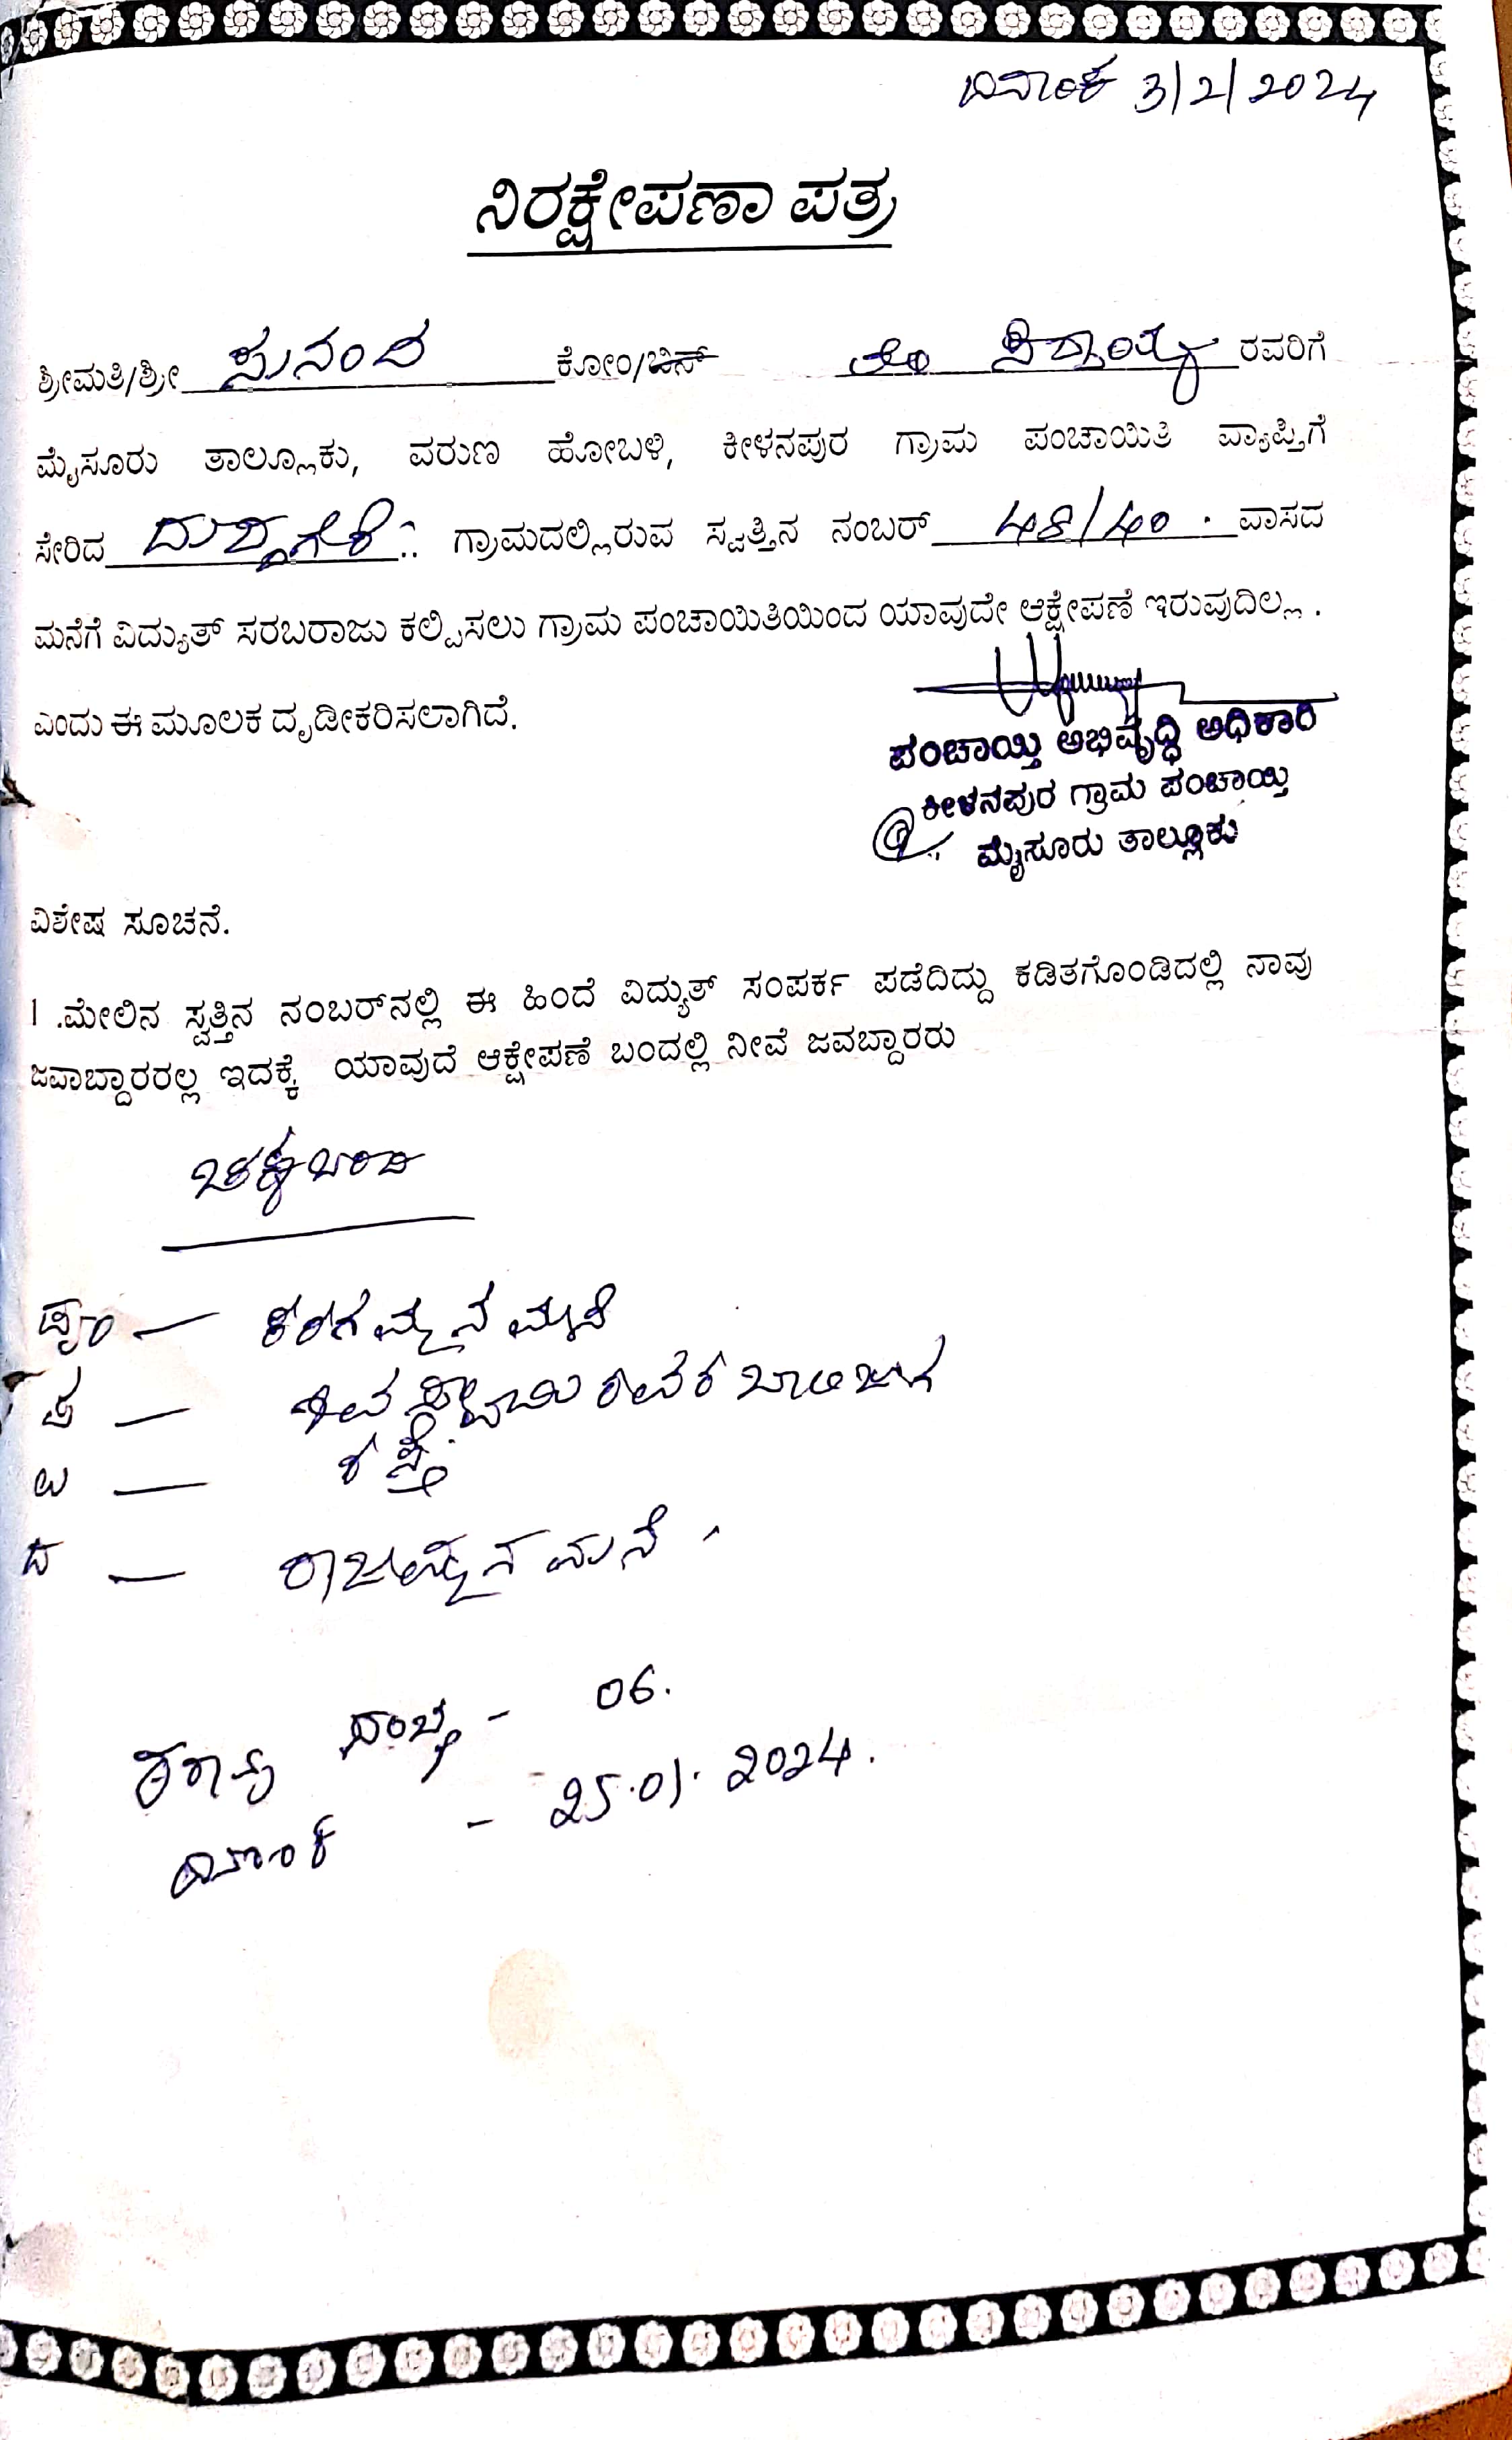 ದಿನಾಂಕ 3/2/2024
ನಿರಕ್ಷೇಪಣಾ ಪತ್ರ
ಶ್ರೀಮತಿ/ಶ್ರೀ ಸುನಂದ ಕೋಂ/ಬಿನ್ ಲೇಟ್ ಸಿದ್ದಯ್ಯ ರವರಿಗೆ
ಮೈಸೂರು ತಾಲ್ಲೂಕು, ವರುಣ ಹೋಬಳಿ, ಕೀಳನಪುರ ಗ್ರಾಮ ಪಂಚಾಯಿತಿ ವ್ಯಾಪ್ತಿಗೆ
ಸೇರಿದ ದುದ್ದಗೆರೆ ಗ್ರಾಮದಲ್ಲಿರುವ ಸ್ವತ್ತಿನ ನಂಬರ್ 48/40 . ವಾಸದ
ಮನೆಗೆ ವಿದ್ಯುತ್ ಸರಬರಾಜು ಕಲ್ಪಿಸಲು ಗ್ರಾಮ ಪಂಚಾಯಿತಿಯಿಂದ ಯಾವುದೇ ಆಕ್ಷೇಪಣೆ ಇರುವುದಿಲ್ಲ .
ಎಂದು ಈ ಮೂಲಕ ದೃಡೀಕರಿಸಲಾಗಿದೆ.
ಪಂಚಾಯ್ತಿ ಅಭಿವೃದ್ಧಿ ಅಧಿಕಾರಿ
ಕೀಳನಪುರ ಗ್ರಾಮ ಪಂಚಾಯ್ತಿ
ಮೈಸೂರು ತಾಲ್ಲೂಕು
ವಿಶೇಷ ಸೂಚನೆ.
1 .ಮೇಲಿನ ಸ್ವತ್ತಿನ ನಂಬರ್‌ನಲ್ಲಿ ಈ ಹಿಂದೆ ವಿದ್ಯುತ್ ಸಂಪರ್ಕ ಪಡೆದಿದ್ದು ಕಡಿತಗೊಂಡಿದಲ್ಲಿ ನಾವು
ಜವಾಬ್ದಾರರಲ್ಲ ಇದಕ್ಕೆ ಯಾವುದೆ ಆಕ್ಷೇಪಣೆ ಬಂದಲ್ಲಿ ನೀವೆ ಜವಬ್ದಾರರು
ಚಕ್ಕುಬಂದಿ
ಪೂ —
ಪ — ಶಿವಸ್ವಾಮಿ ರವರ
ಉ — ರಸ್ತೆ.
ದ — ರಾಜಮ್ಮನ ಮನೆ .
ಸಂಖ್ಯೆ - 06.
ದಿನಾಂಕ - 25.01.2024.